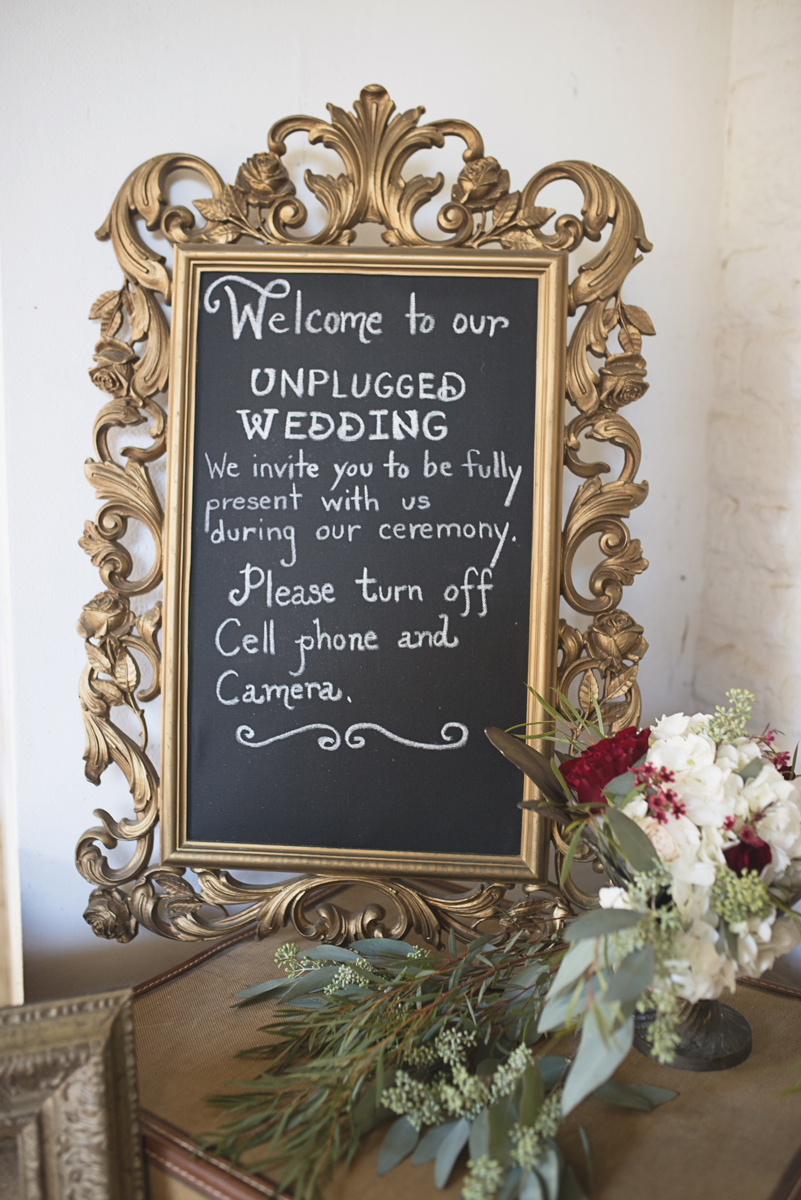 Welcome to our
UNPLUGGED
WEDDING
We invite you to be fully
present with us
during our ceremony.
Please turn off
Cell phone and
Camera.